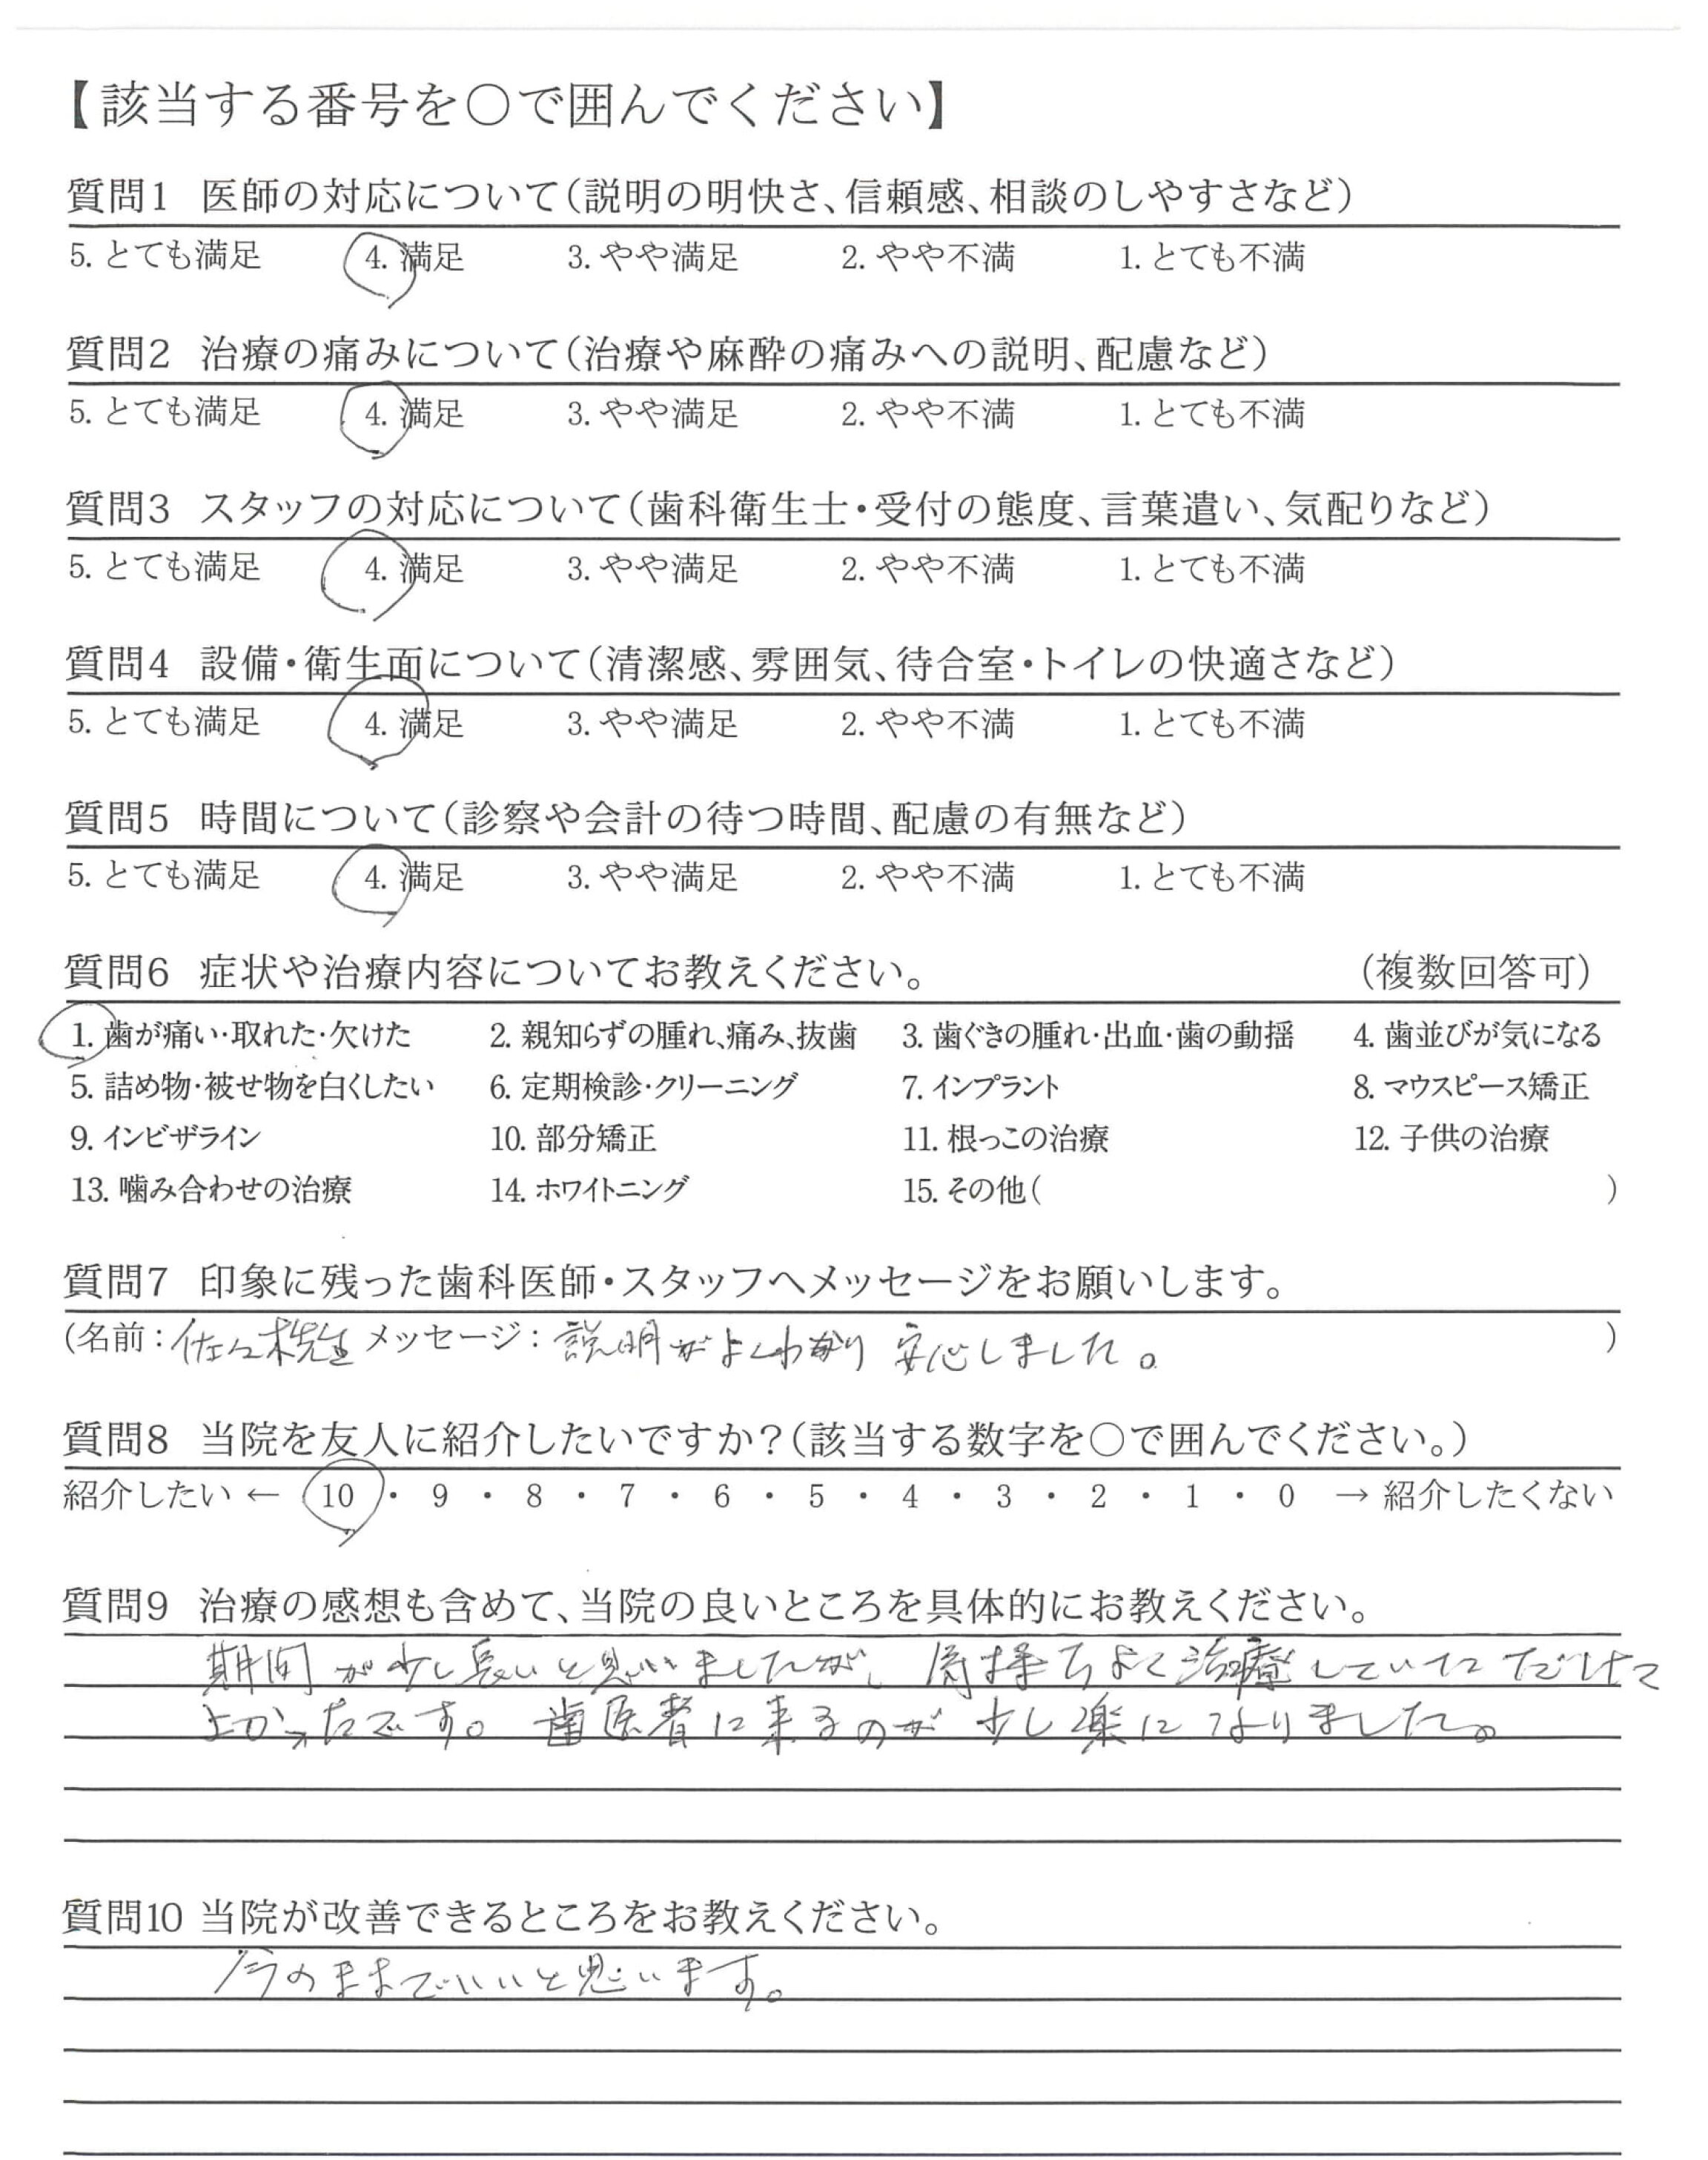 【該当する番号を〇で囲んでください】
質問1 医師の対応について(説明の明快さ、信頼感、相談のしやすさなど)
5. とても満足 4. 満足 3. やや満足 2. やや不満 1. とても不満
質問2 治療の痛みについて(治療や麻酔の痛みへの説明、配慮など)
5. とても満足 4. 満足 3. やや満足 2. やや不満 1. とても不満
質問3 スタッフの対応について(歯科衛生士・受付の態度、言葉遣い、気配りなど)
5. とても満足 4. 満足 3. やや満足 2. やや不満 1. とても不満
質問4 設備・衛生面について(清潔感、雰囲気、待合室・トイレの快適さなど)
5. とても満足 4. 満足 3. やや満足 2. やや不満 1. とても不満
質問5 時間について(診察や会計の待つ時間、配慮の有無など)
5. とても満足 4. 満足 3. やや満足 2. やや不満 1. とても不満
質問6 症状や治療内容についてお教えください。 (複数回答可)
1. 歯が痛い・取れた・欠けた 2. 親知らずの腫れ、痛み、抜歯 3. 歯ぐきの腫れ・出血・歯の動揺 4. 歯並びが気になる
5. 詰め物・被せ物を白くしたい 6. 定期検診・クリーニング 7. インプラント 8. マウスピース矯正
9. インビザライン 10. 部分矯正 11. 根っこの治療 12. 子供の治療
13. 噛み合わせの治療 14. ホワイトニング 15. その他( )
質問7 印象に残った歯科医師・スタッフへメッセージをお願いします。
(名前：佐々木先生 メッセージ：説明がよくわかり 安心しました。 )
質問8 当院を友人に紹介したいですか？(該当する数字を〇で囲んでください。)
紹介したい ← 10 ・ 9 ・ 8 ・ 7 ・ 6 ・ 5 ・ 4 ・ 3 ・ 2 ・ 1 ・ 0 → 紹介したくない
質問9 治療の感想も含めて、当院の良いところを具体的にお教えください。
期間が少し長いと思いましたが、気持ちよく治療していただけて
よかったです。歯医者に来るのが少し楽になりました。
質問10 当院が改善できるところをお教えください。
今のままでいいと思います。